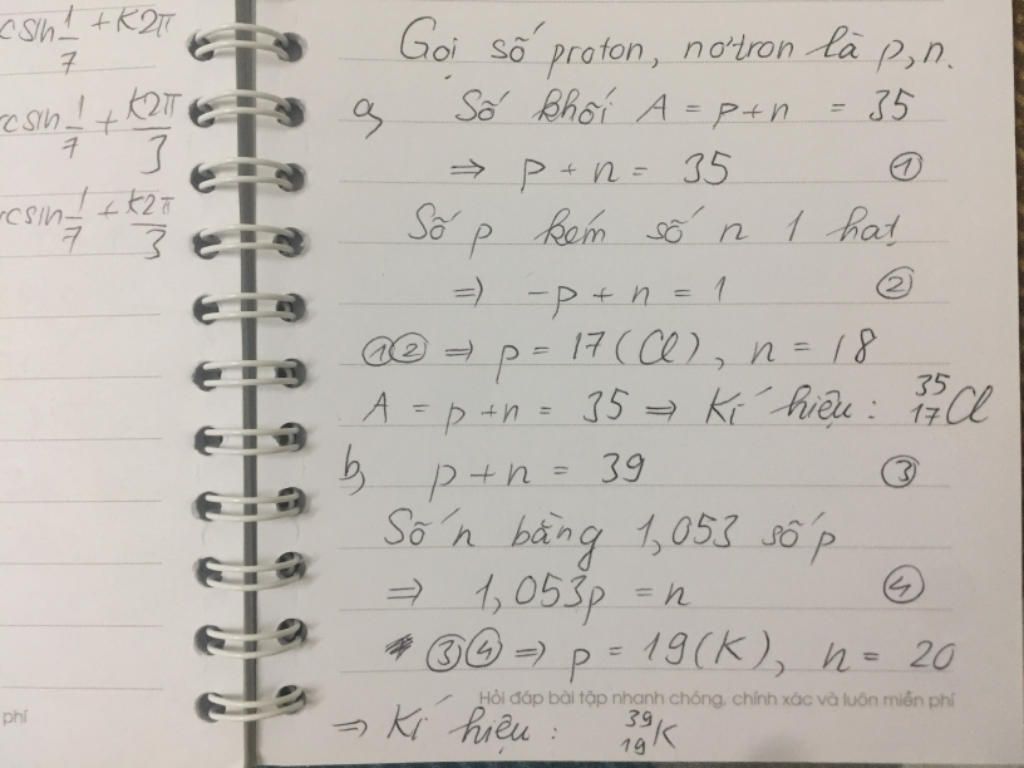 csin 1/7 + k2π
rcsin 1/7 + k2π/3
rcsin 1/7 + k2π/3
phí
Gọi số proton, nơtron là p, n.
a, Số khối A = p + n = 35
⇒ p + n = 35 ①
Số p kém số n 1 hạt
⇒ -p + n = 1 ②
①② ⇒ p = 17 (Cl), n = 18
A = p + n = 35 ⇒ Kí hiệu: ³⁵₁₇Cl
b, p + n = 39 ③
Số n bằng 1,053 số p
⇒ 1,053p = n ④
③④ ⇒ p = 19 (K), n = 20
Hỏi đáp bài tập nhanh chóng, chính xác và luôn miễn phí
⇒ Kí hiệu: ³⁹₁₉K